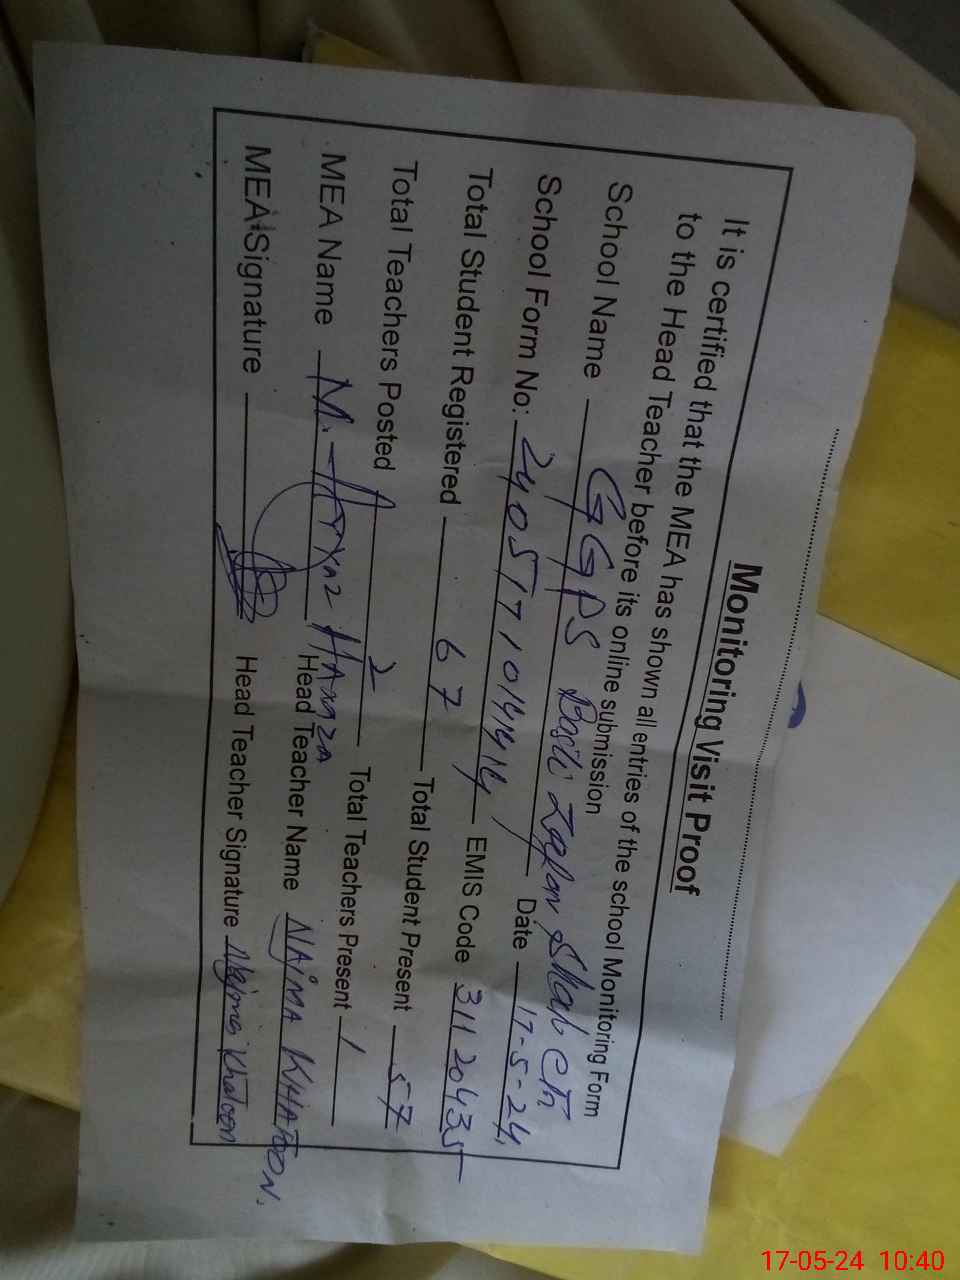 Monitoring Visit Proof
It is certified that the MEA has shown all entries of the school Monitoring Form
to the Head Teacher before its online submission
School Name GGPS Basti Zafar Shah
School Form No: 240517101414 Date 17-5-24
Total Student Registered 67 EMIS Code 31120435
Total Teachers Posted 2 Total Student Present 57
MEA Name M. HAMZA Total Teachers Present 1
MEA Signature Head Teacher Name NAJMA KHATOON.
Head Teacher Signature Najma Khatoon
17-05-24 10:40